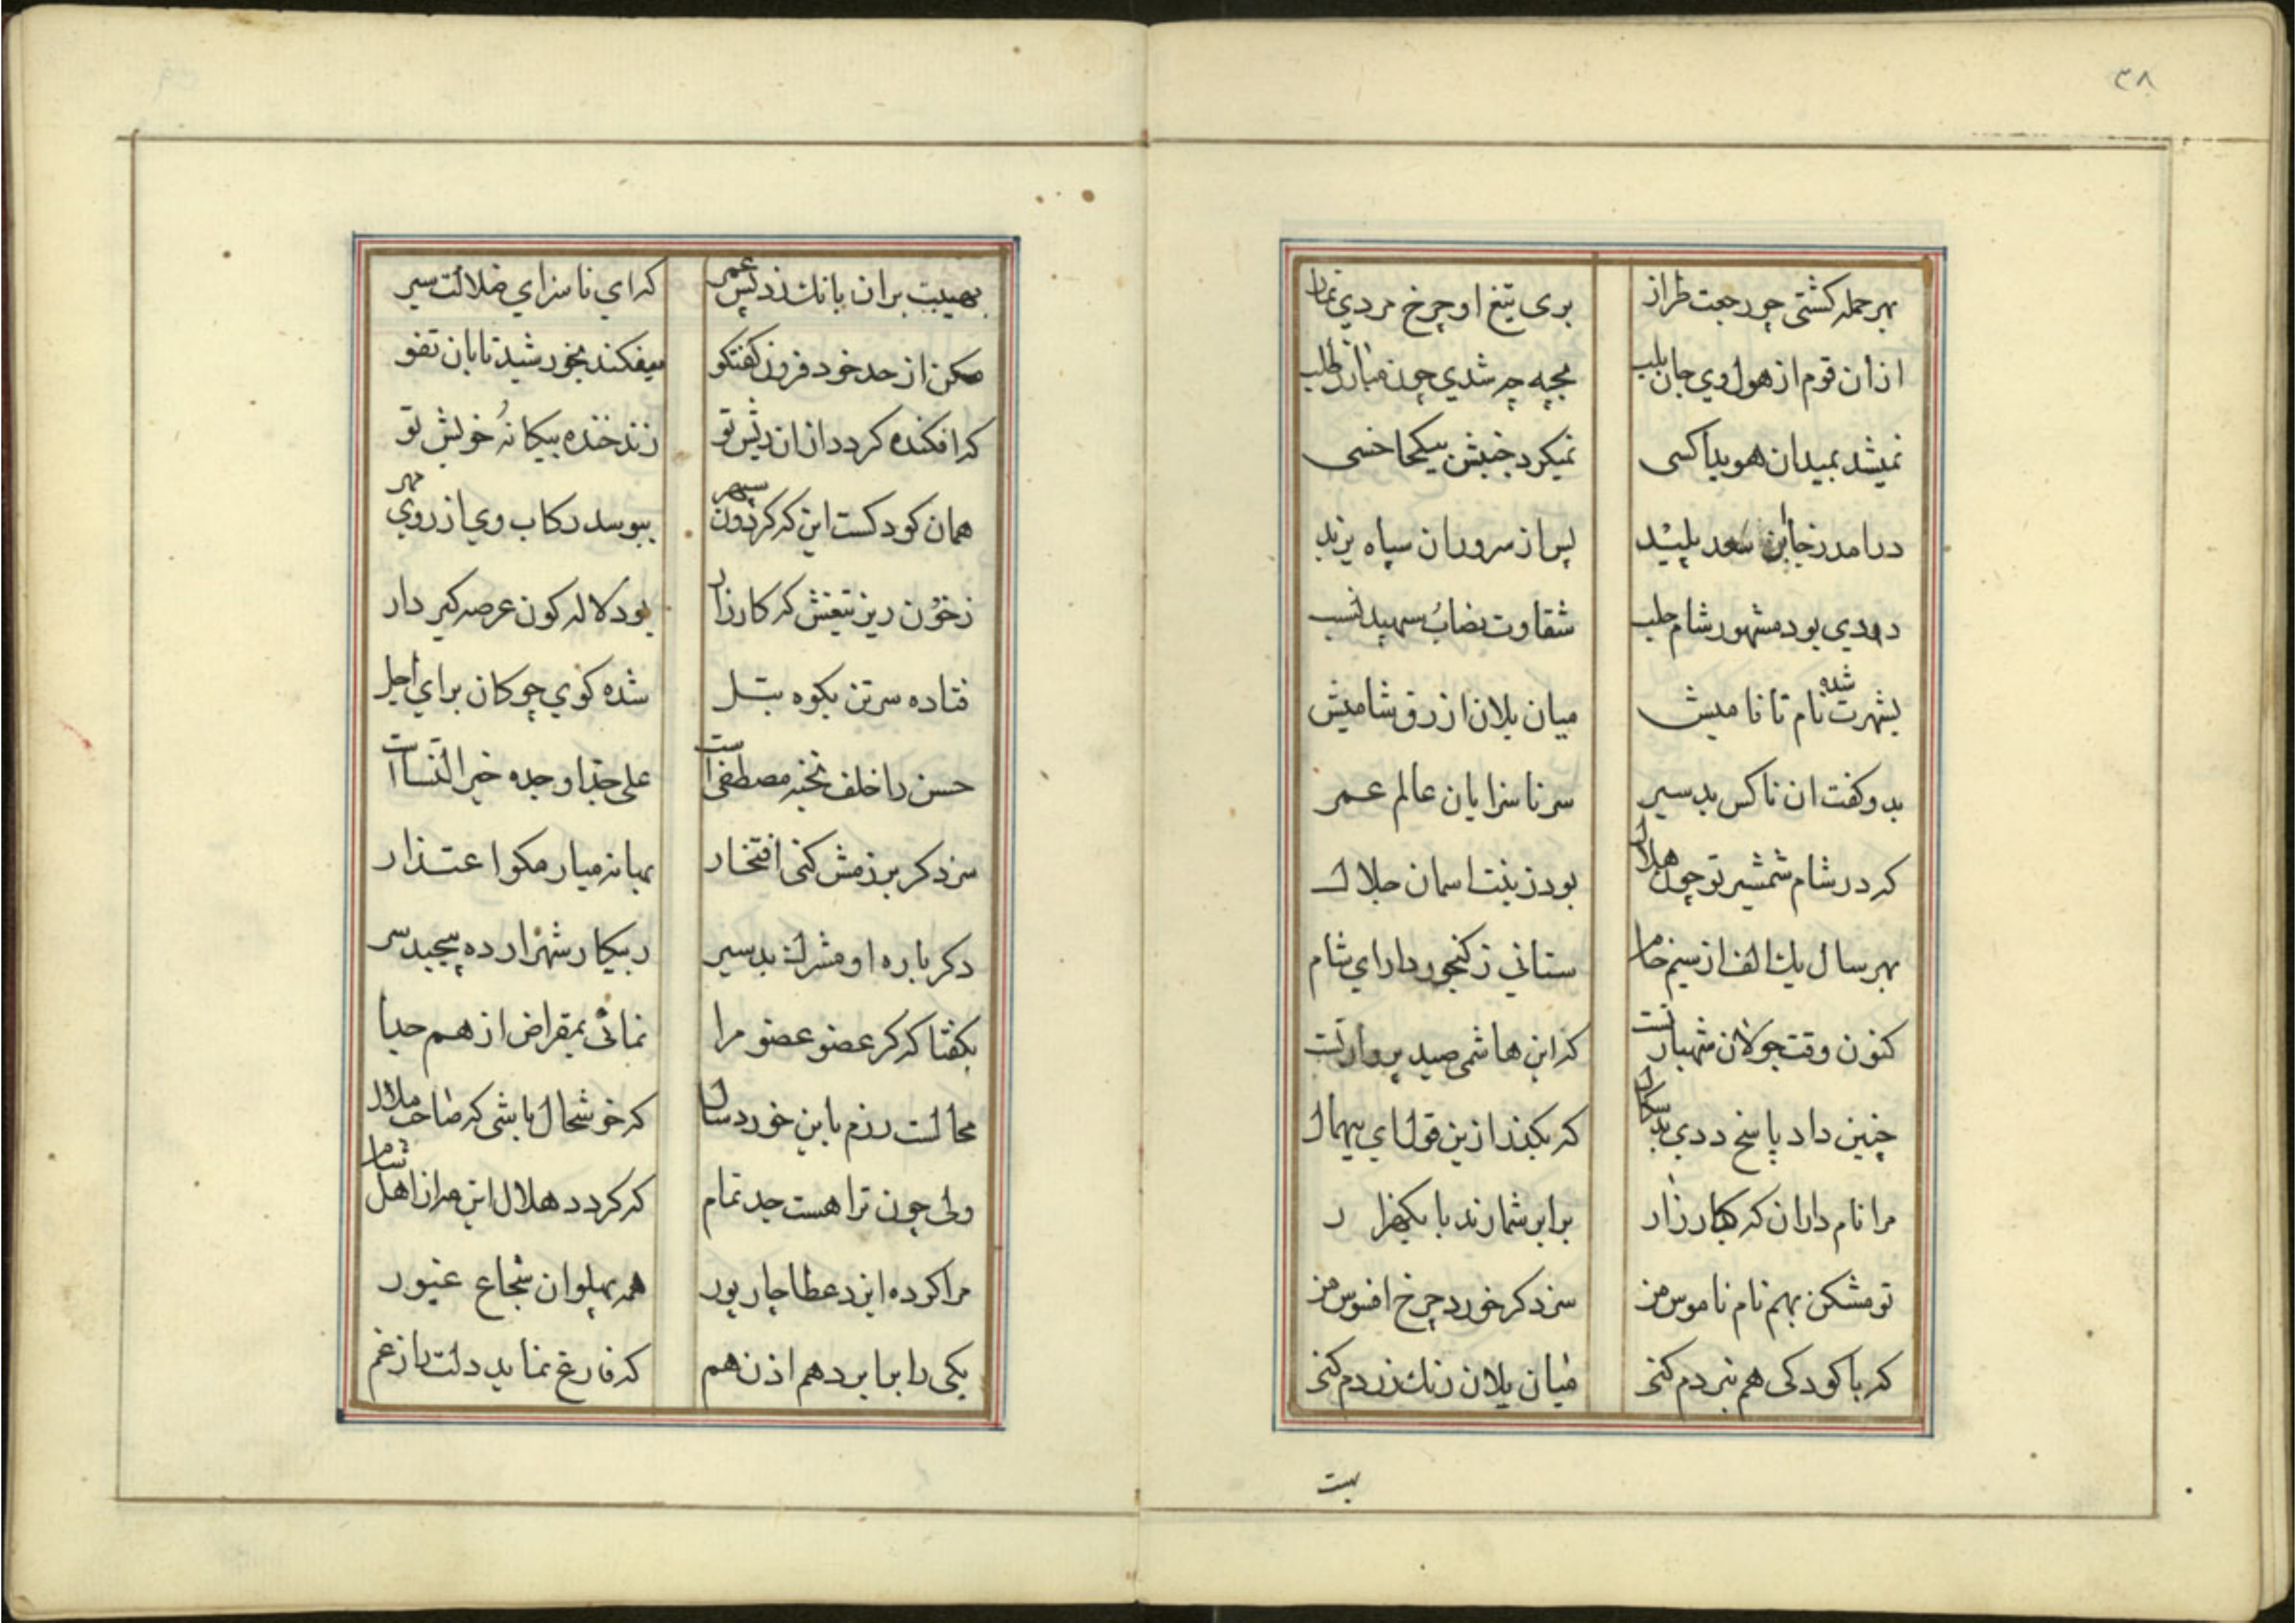 ۳۸
بهر حمله کشتی چو رجعت طراز
بری تیغ او چرخ مردي نماز
ازان قوم از هول وي جان بلب
بجبه چر شدي چون مبارز طلب
نمیشد بمیدان هویدا کسی
نمیکرد جنبش بیکجا خسی
درامد زجا ابن سعد پلید
پس از سروران سپاه یزید
ددي بود مشهور شام حلب
شقاوت نصاب سپهبد نسب
بشهرت شده نام تا نامیش
میان یلان ازرق شامیش
بدو کفت ان ناکس بد سیر
سر ناسزایان عالم عمر
که در شام شمشیر تو چون هلال
بود زینت اسمان جلال
بهر سال یك الف از سیم خام
ستاني ز کنجور داراي شام
کنون وقت جولان شهبازتست
کزابن هاشمی صید پروازتست
چنین داد پاسخ ددي بد سکال
که بکذر ازین قول اي بیهمال
مرا نام داران که کارزار
برابر شمارند با یکهزار
تو مشکن بهم نام ناموس من
سزد کر خورد چرخ افسوس من
که با کودکی هم نبردم کنی
میان یلان رنك زردم کنی
بهیبت
بهیبت بران بانك زد پس عمر
که اي ناسزاي ضلالت سیر
مکن از حد خود فزون کفتکو
میفکند بخورشید تابان تفو
که افکنده کردد ازان ریش تو
زند خنده بیکانه خویش تو
همان کودکست این که کردون سپهر
ببوسد رکاب وي از روي مهر
زخون ریز تیغش که کارزار
بود لاله کون عرصه کیر دار
فتاده سر تن بکوه بتل
شده کوي چوکان براي اجل
حسن را خلف نخبه مصطفی است
علی جد او جده خیر النسا است
سزد کر برزمش کنی افتخار
بهانه میار مکو اعتذار
دکر باره او مشرك بد سیر
ز پیکار شهزاده پیچید سر
بکفتا که کر عضو عضو مرا
نمائی بمقراض از هم جدا
محالست رزم باین خورد سال
که خوشحال باشی که صاحب ملال
ولی چون ترا هست جد تمام
که کردد هلال این مه از اهل شام
مرا کرده ایزد عطا چار پور
همه پهلوان شجاع غیور
یکی را برابر دهم اذن هم
که فارغ نماید دلت را زغم